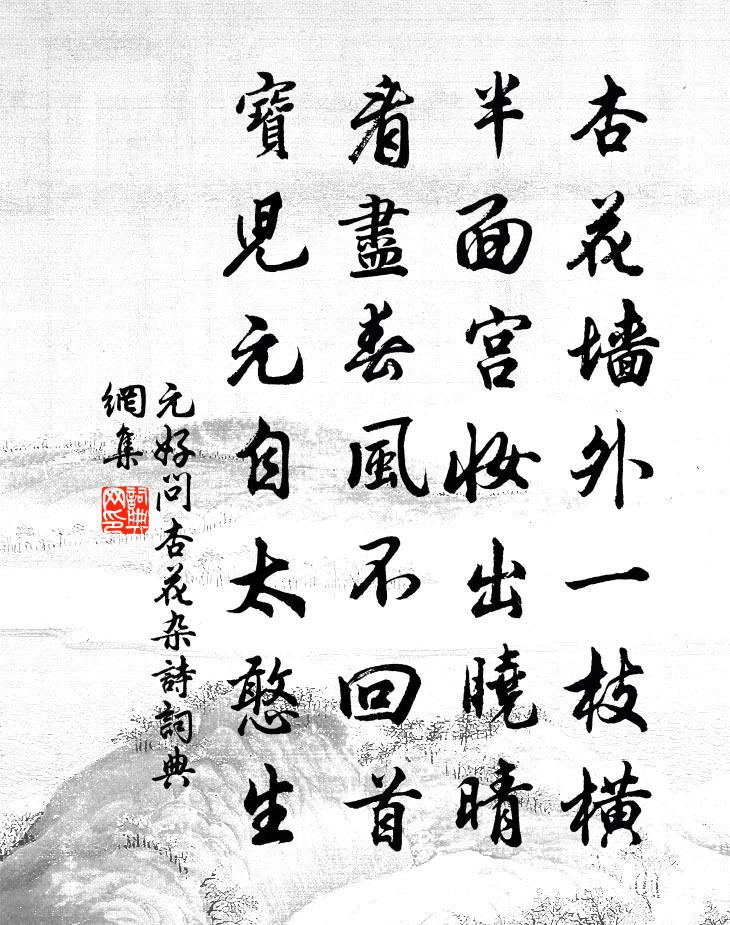 杏花墙外一枝横
半面宫妆出曉晴
看盡春風不回首
寶児元自太憨生
元好问杏花杂詩詞典
網集
詞典
网印